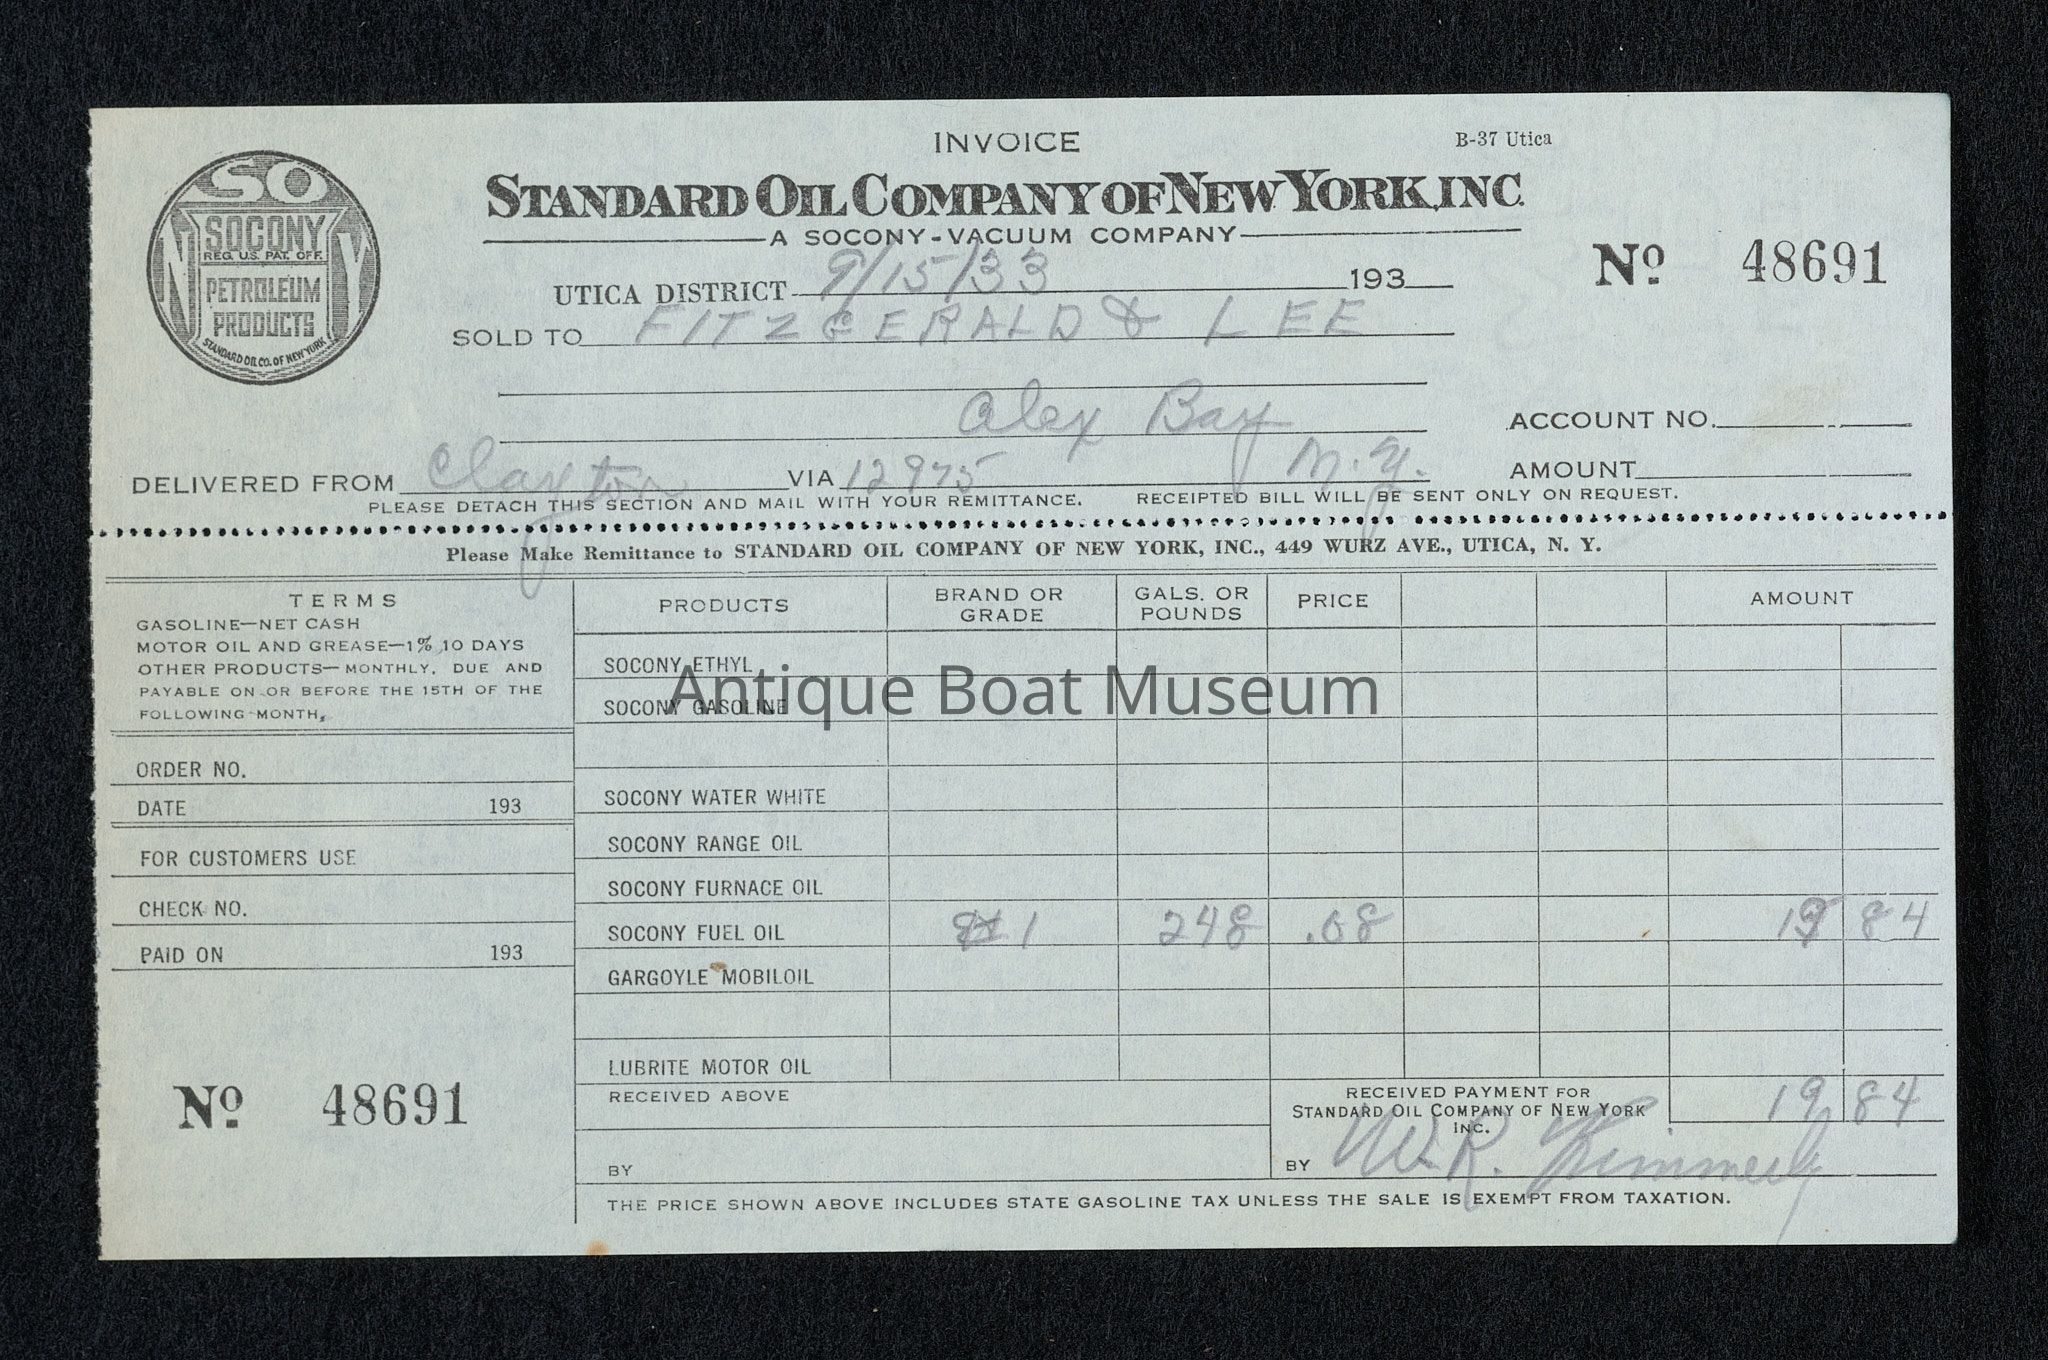 INVOICE
B-37 Utica
STANDARD OIL COMPANY OF NEW YORK, INC.
A SOCONY-VACUUM COMPANY
SO
N Y
SOCONY
REG. U.S. PAT. OFF.
PETROLEUM
PRODUCTS
STANDARD OIL CO. OF NEW YORK
No 48691
UTICA DISTRICT 9/15/33 193
SOLD TO FITZGERALD & LEE
Alex Bay
N.Y.
ACCOUNT NO.
DELIVERED FROM Clayton VIA 12975
AMOUNT
PLEASE DETACH THIS SECTION AND MAIL WITH YOUR REMITTANCE. RECEIPTED BILL WILL BE SENT ONLY ON REQUEST.
Please Make Remittance to STANDARD OIL COMPANY OF NEW YORK, INC., 449 WURZ AVE., UTICA, N. Y.
TERMS
GASOLINE—NET CASH
MOTOR OIL AND GREASE—1% 10 DAYS
OTHER PRODUCTS—MONTHLY, DUE AND
PAYABLE ON OR BEFORE THE 15TH OF THE
FOLLOWING MONTH.
ORDER NO.
DATE 193
FOR CUSTOMERS USE
CHECK NO.
PAID ON 193
No 48691
PRODUCTS BRAND OR GRADE GALS. OR POUNDS PRICE AMOUNT
SOCONY ETHYL
SOCONY GASOLINE
Antique Boat Museum
SOCONY WATER WHITE
SOCONY RANGE OIL
SOCONY FURNACE OIL
SOCONY FUEL OIL 1 248 .08 19 84
GARGOYLE MOBILOIL
LUBRITE MOTOR OIL
RECEIVED ABOVE
BY
RECEIVED PAYMENT FOR
STANDARD OIL COMPANY OF NEW YORK
INC.
19 84
BY W.R.
THE PRICE SHOWN ABOVE INCLUDES STATE GASOLINE TAX UNLESS THE SALE IS EXEMPT FROM TAXATION.